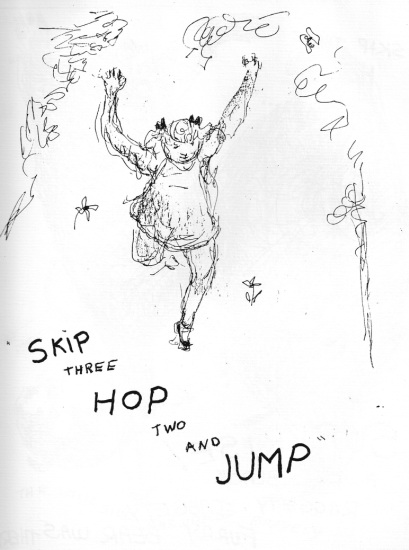 "SKiP
THREE
HOP
TWO
AND
JUMP"